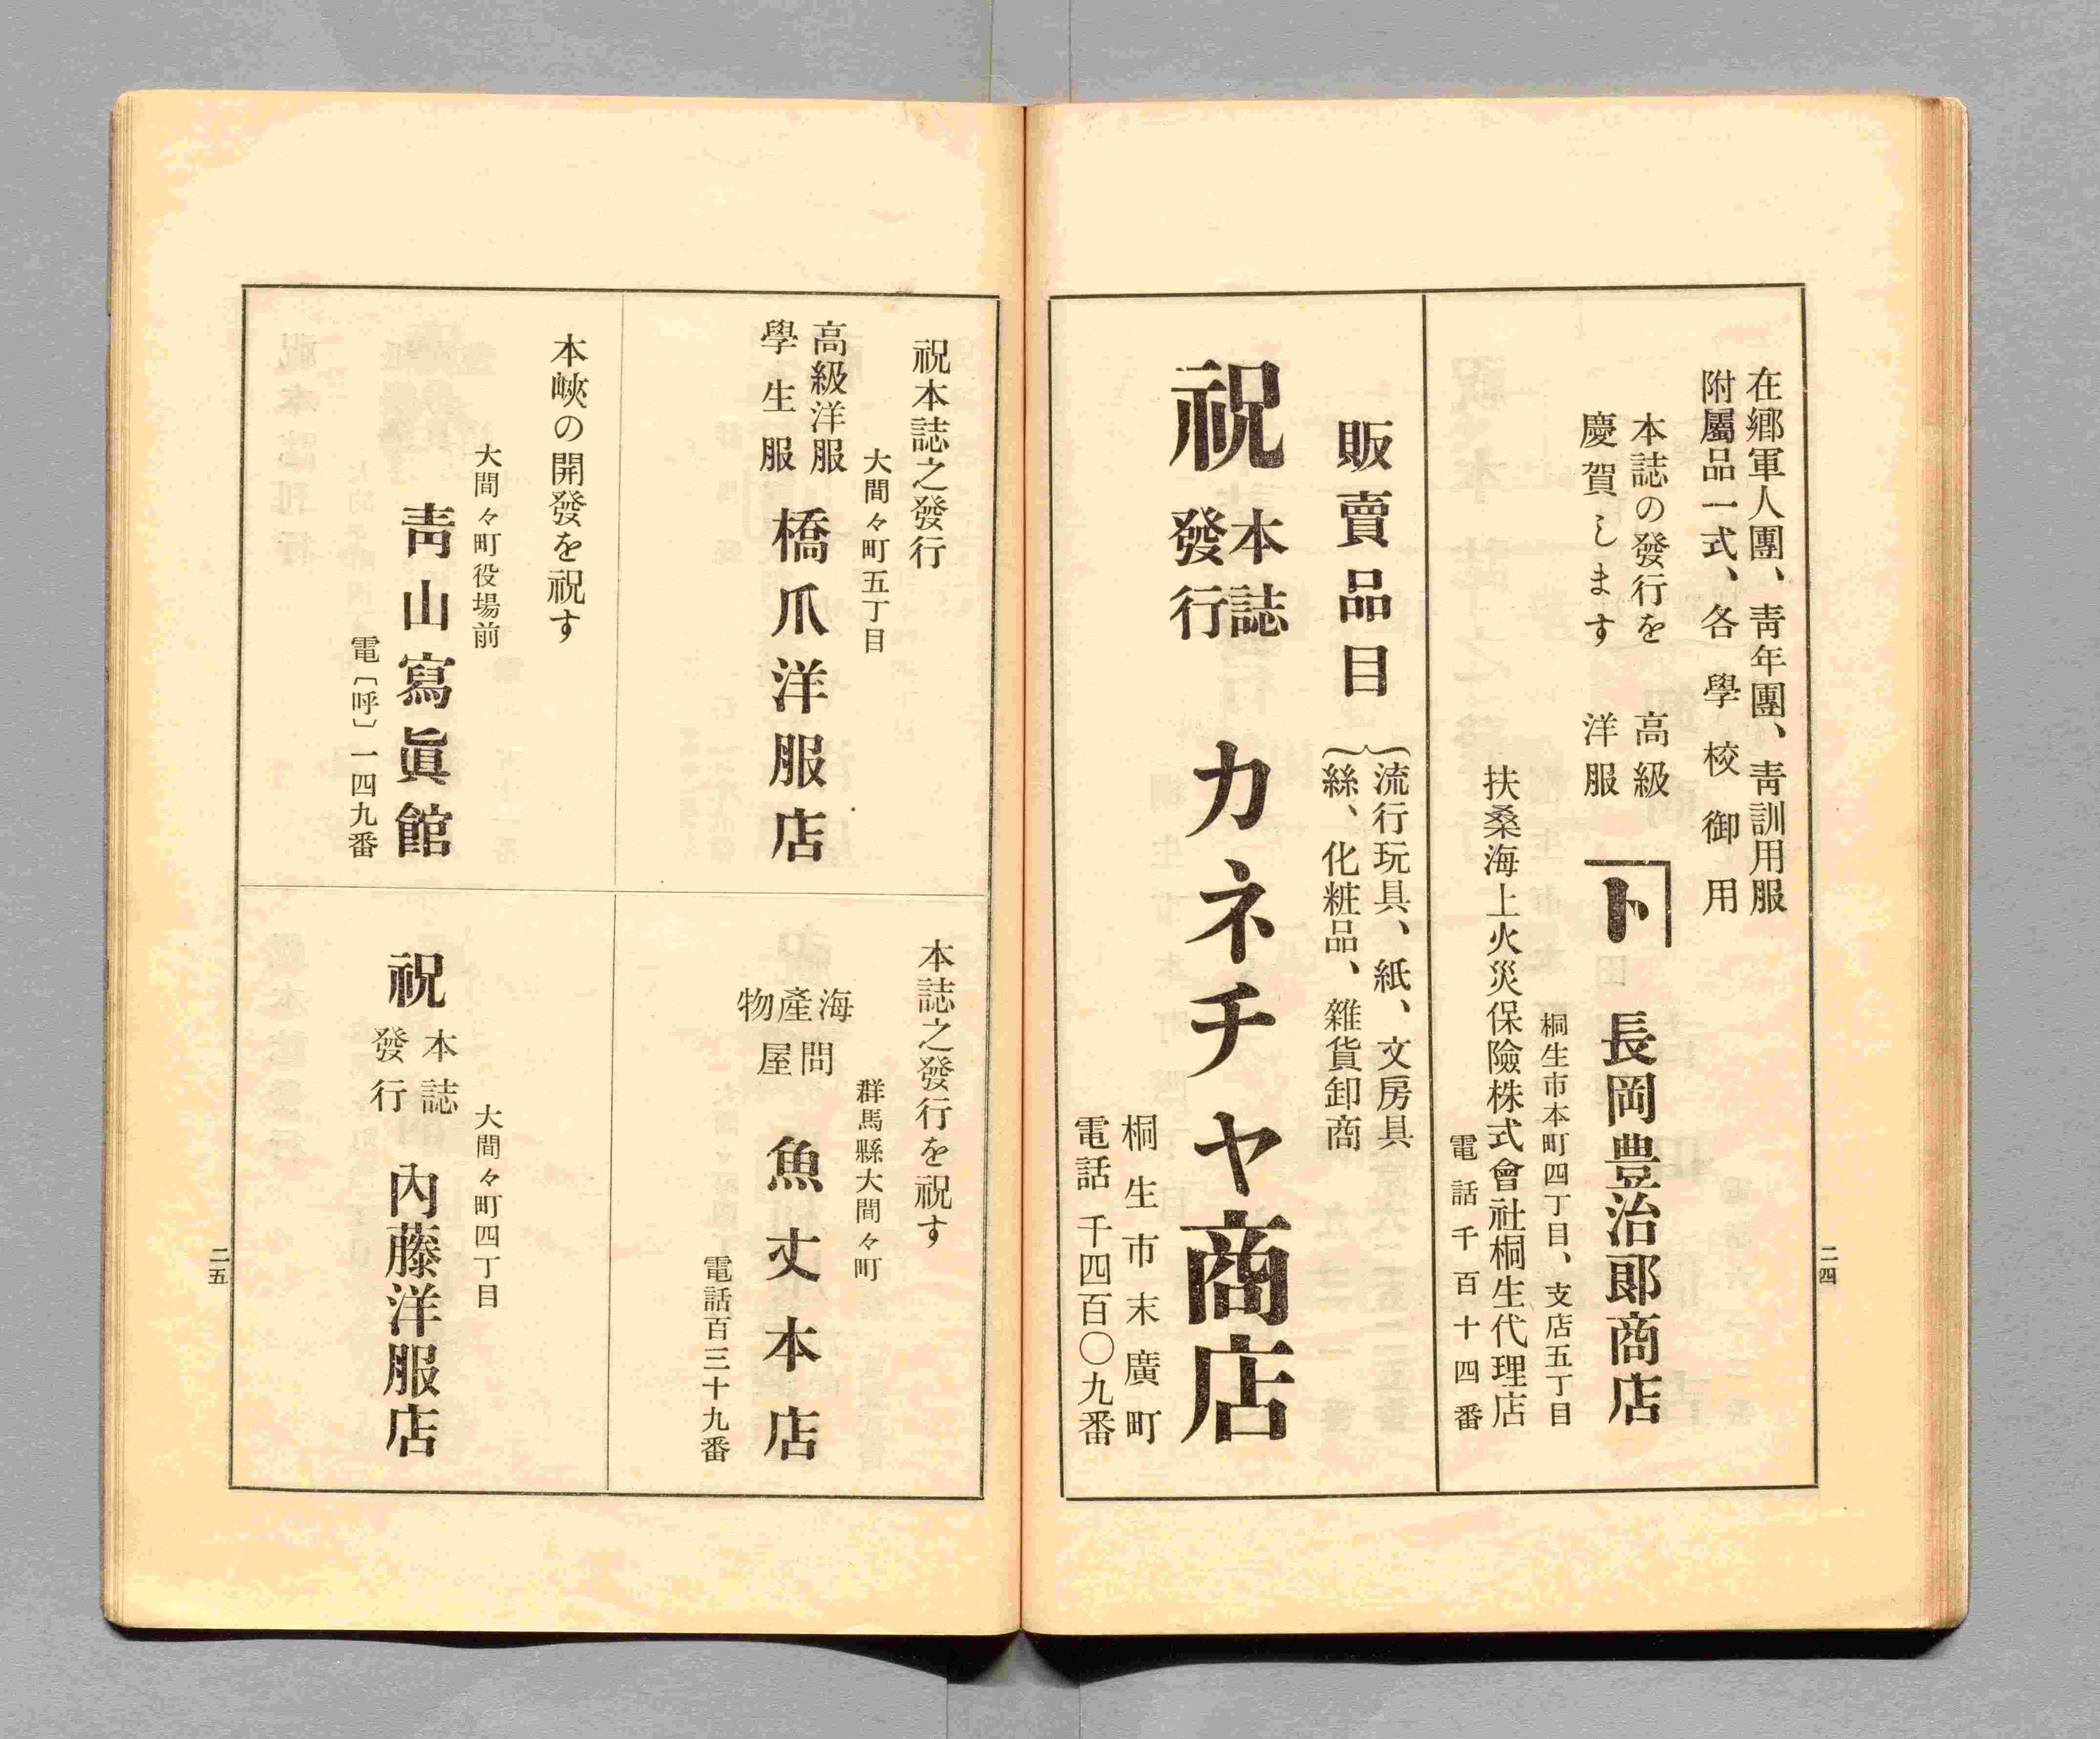 在鄕軍人團、靑年團、靑訓用服
附屬品一式、各學校御用
本誌の發行を
慶賀します
高級
洋服
ト
長岡豊治郎商店
桐生市本町四丁目、支店五丁目
扶桑海上火災保險株式會社桐生代理店
電話千百十四番
二四
販賣品目
流行玩具、紙、文房具
絲、化粧品、雜貨卸商
祝
本誌
發行
カネチヤ商店
桐生市末廣町
電話千四百〇九番
祝本誌之發行
大間々町五丁目
高級洋服
學生服
橋爪洋服店
本峽の開發を祝す
大間々町役場前
靑山寫眞館
電〔呼〕一四九番
本誌之發行を祝す
群馬縣大間々町
海產物
問屋
魚丈本店
電話百三十九番
祝
本誌
發行
大間々町四丁目
內藤洋服店
二五